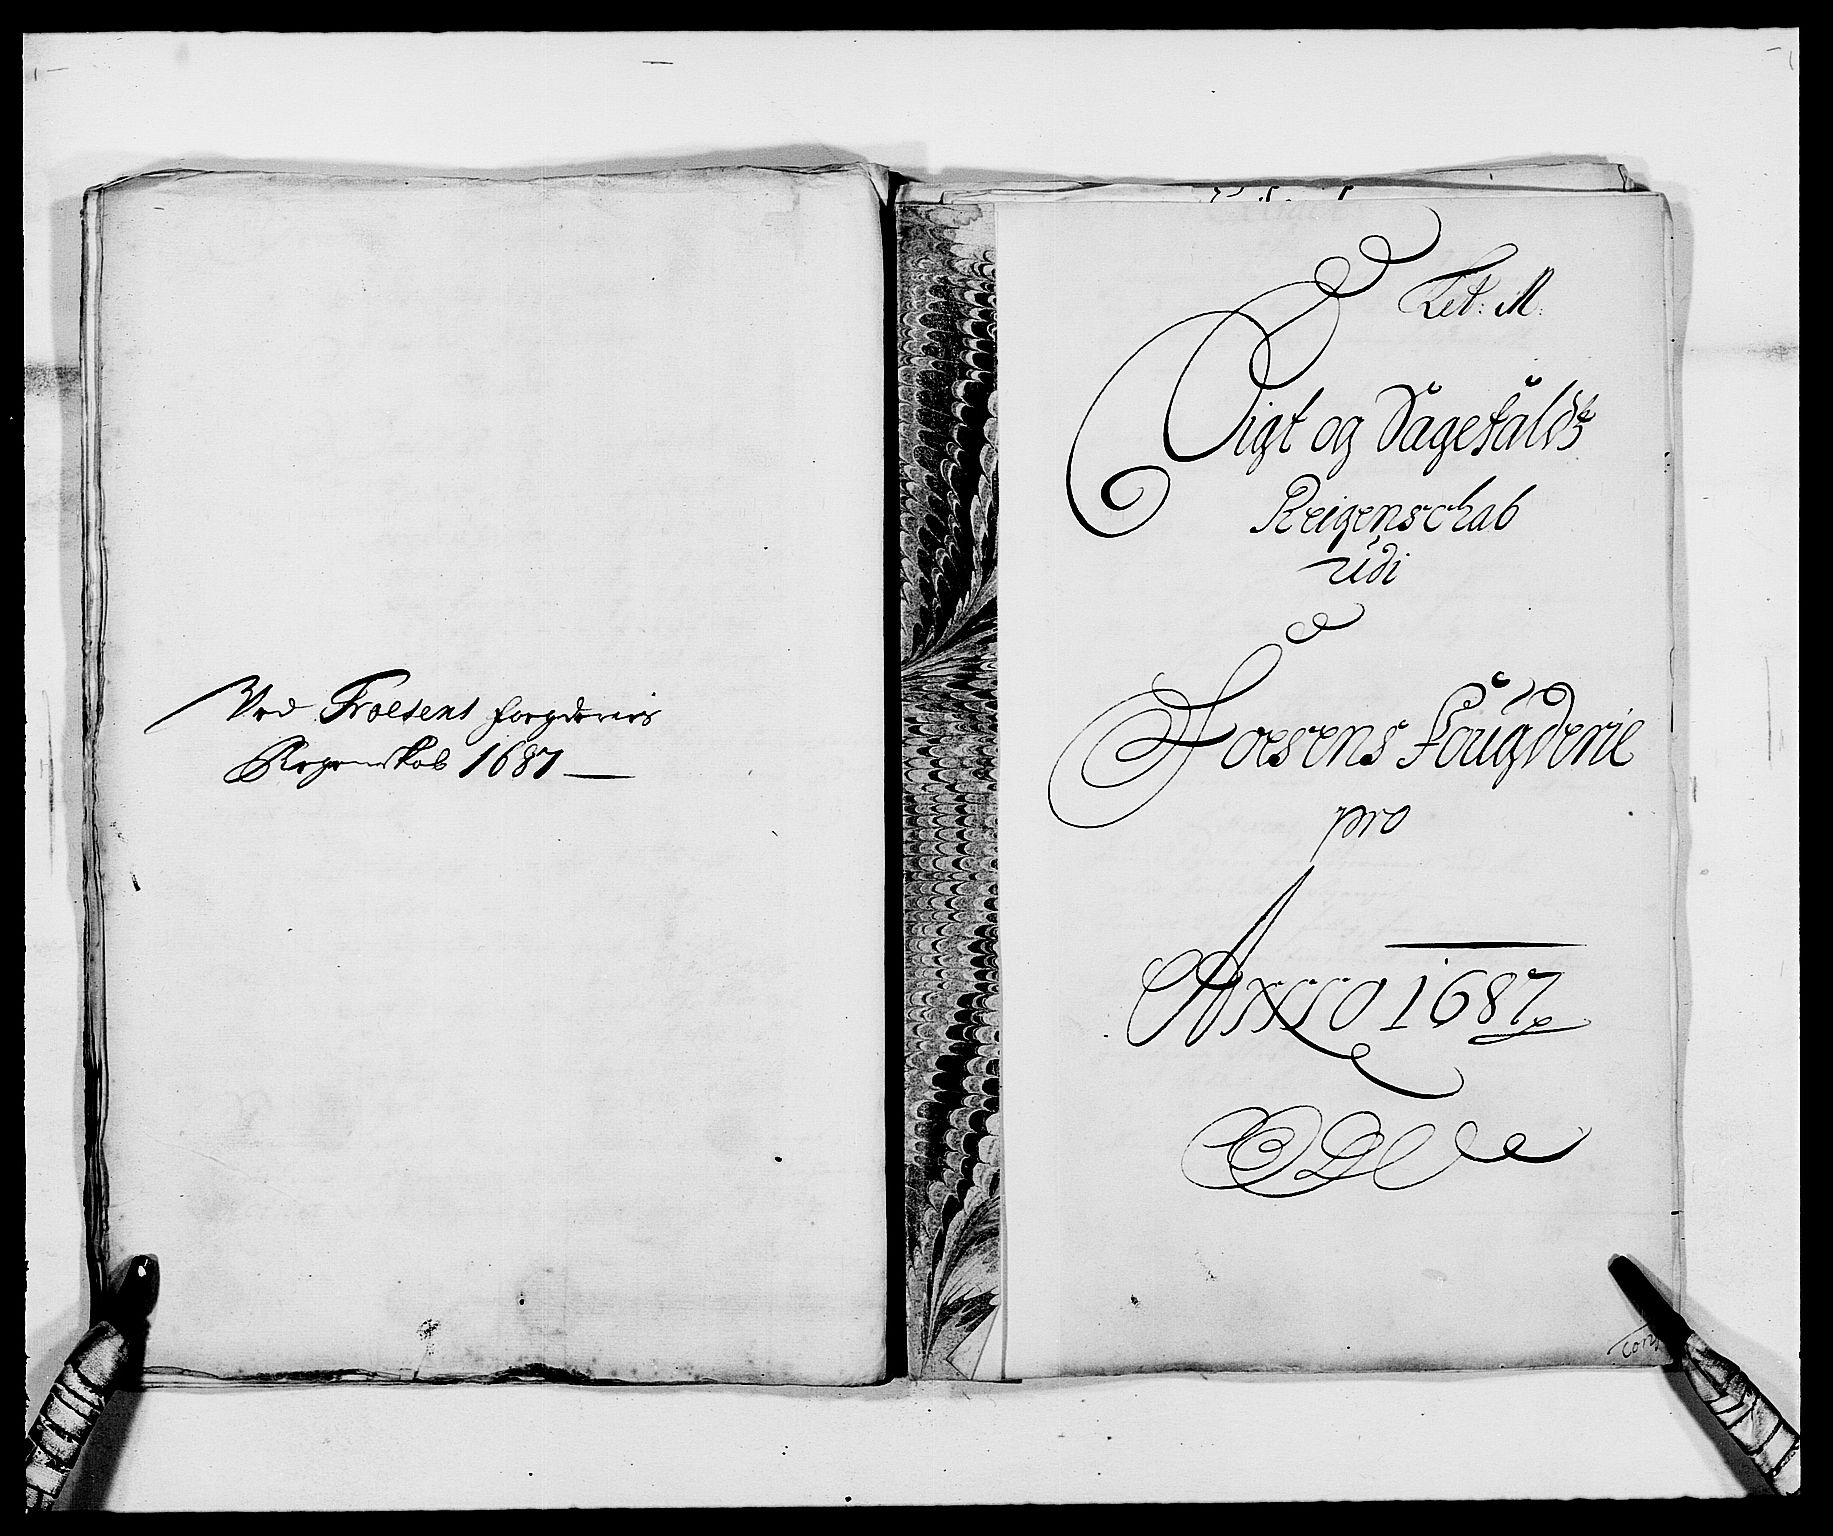 Ved Froesens fougderies
Regenskab 1687
Lit: M:
Sigt og Sagefalds
Reigenschab
udi
Froesens Fougderie
pro
Anno 1687